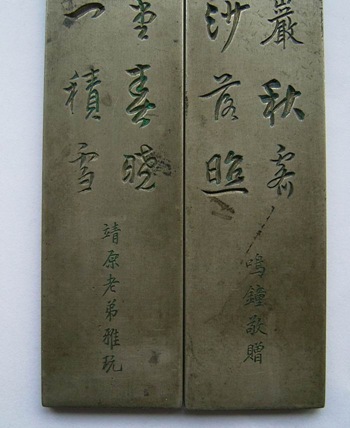 巖秋霽
沙落照
鳴鐘敬贈
堂春曉
一積雪
靖原老弟雅玩